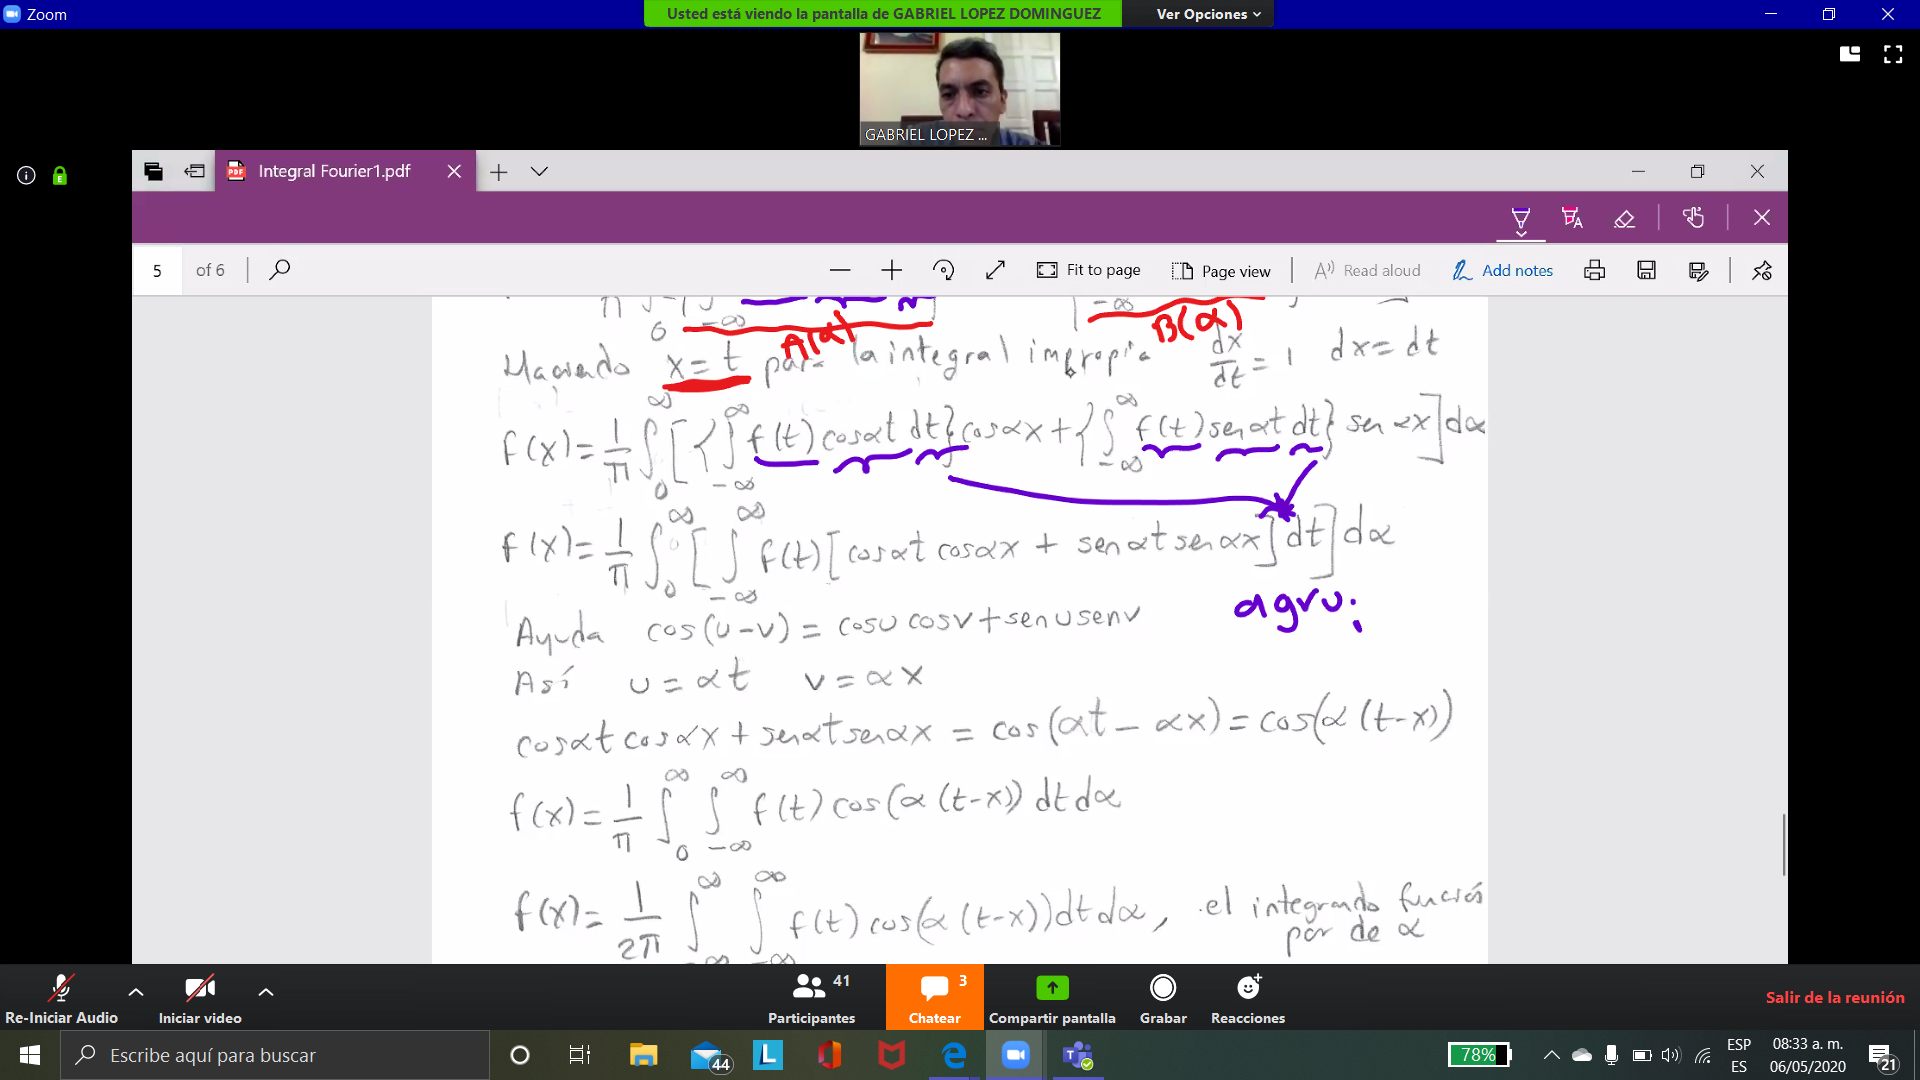 Zoom
Usted está viendo la pantalla de GABRIEL LOPEZ DOMINGUEZ
Ver Opciones
GABRIEL LOPEZ ...
Integral Fourier1.pdf
5 of 6
Fit to page
Page view
Read aloud
Add notes
π 0 -∞ -∞
A(α) B(α)
Haciendo x = t para la integral impropia dx/dt = 1 dx = dt
f(x) = 1/π ∫₀^∞ [ { ∫_{-∞}^∞ f(t) cosαt dt } cosαx + { ∫_{-∞}^∞ f(t) sen αt dt } sen αx ] dα
f(x) = 1/π ∫₀^∞ [ ∫_{-∞}^∞ f(t) [ cosαt cosαx + sen αt sen αx ] dt ] dα
agru
Ayuda cos(u-v) = cosu cosv + sen u sen v
Así u = αt v = αx
cosαt cosαx + senαt senαx = cos(αt - αx) = cos(α(t-x))
f(x) = 1/π ∫₀^∞ ∫_{-∞}^∞ f(t) cos(α(t-x)) dt dα
f(x) = 1/2π ∫_{-∞}^∞ ∫_{-∞}^∞ f(t) cos(α(t-x)) dt dα, el integrando función
par de α
Re-Iniciar Audio
Iniciar video
Participantes 41
Chatear 3
Compartir pantalla
Grabar
Reacciones
Salir de la reunión
Escribe aquí para buscar
44
78%
ESP
ES
08:33 a. m.
06/05/2020
21